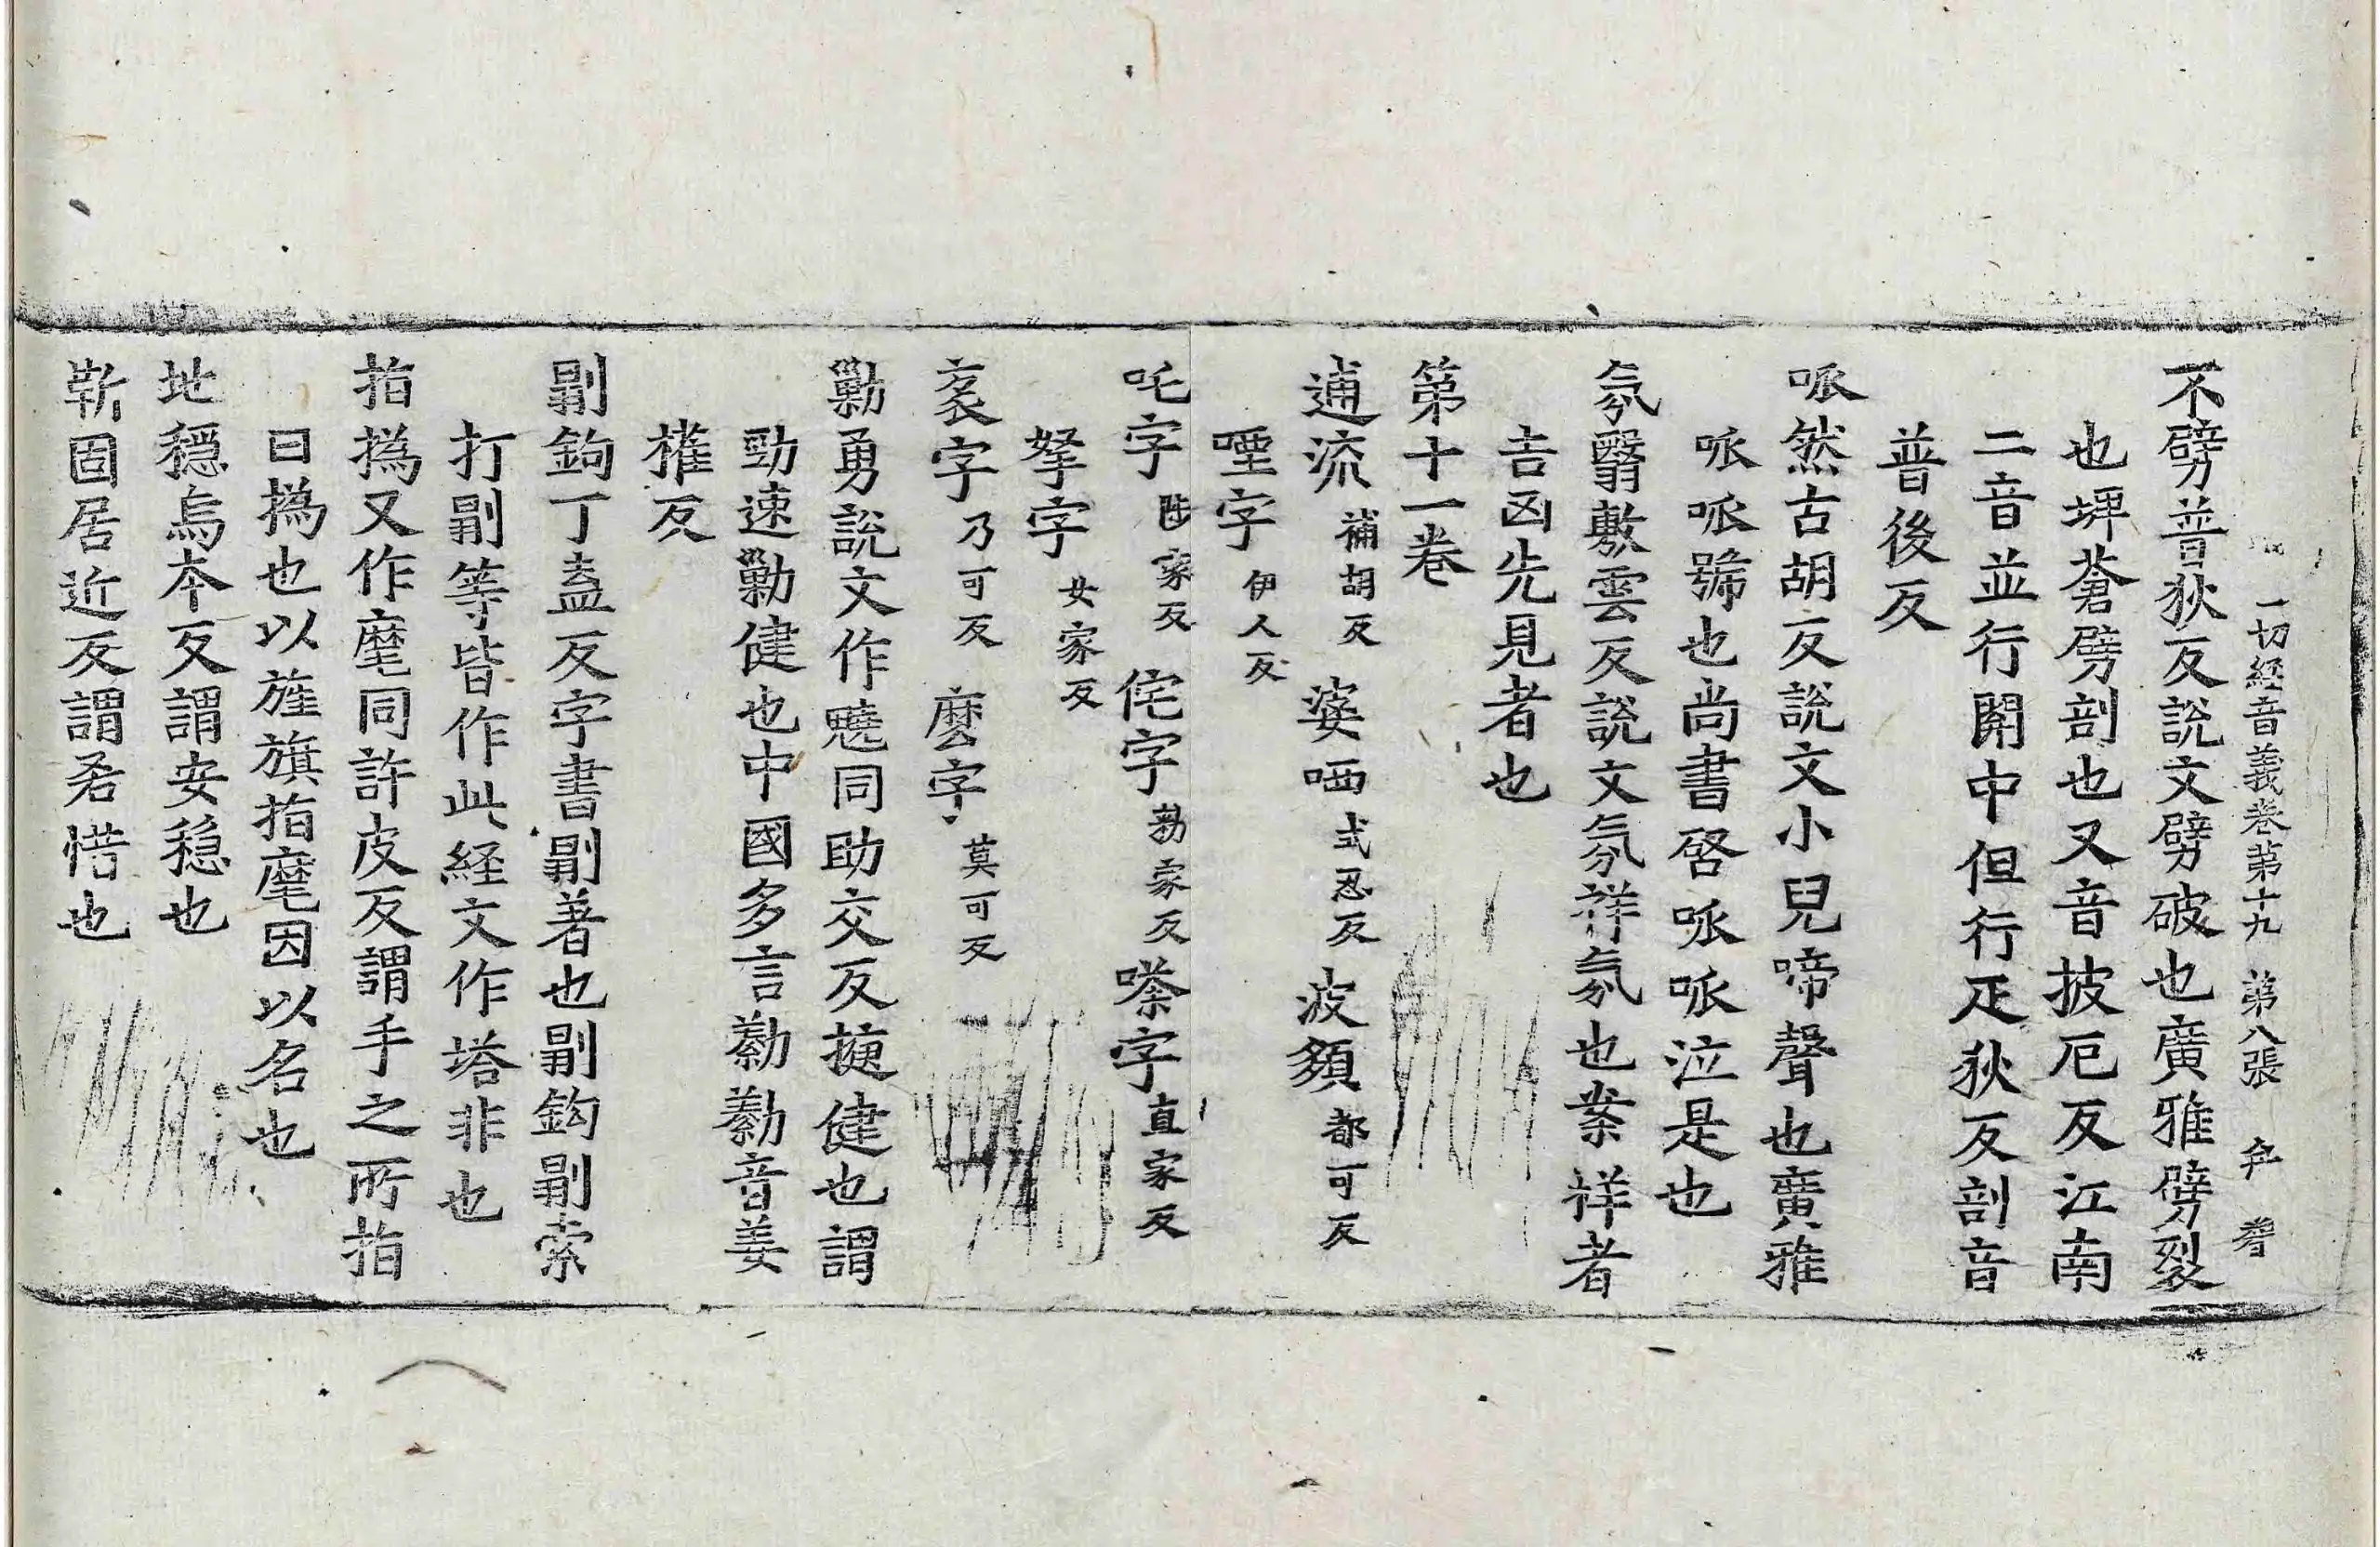 一切経音義卷第十九 第八張
不劈普狄反說文劈破也廣雅劈裂
也埤蒼劈剖也又音披厄反江南
二音並行關中但行疋狄反剖音
普後反
呱然古胡反說文小兒啼聲也廣雅
呱呱號也尚書啓呱呱泣是也
氛翳敷雲反說文氛祥氛也案祥者
吉凶先見者也
第十一卷
逋流補胡反 婆哂式忍反 波頞都可反
堙字伊人反
吒字陟家反 侘字勑家反 㗬字直家反
拏字女家反
袤字乃可反 麽字莫可反
勦勇說文作魑同助交反捷健也謂
勁速勦健也中國多言勦勦音姜
權反
剔鉤丁盍反字書剔著也剔鈎剔索
打剔等皆作此経文作塔非也
指撝又作麾同許皮反謂手之所指
曰撝也以旌旗指麾因以名也
地穩烏本反謂安穏也
靳固居近反謂吝惜也